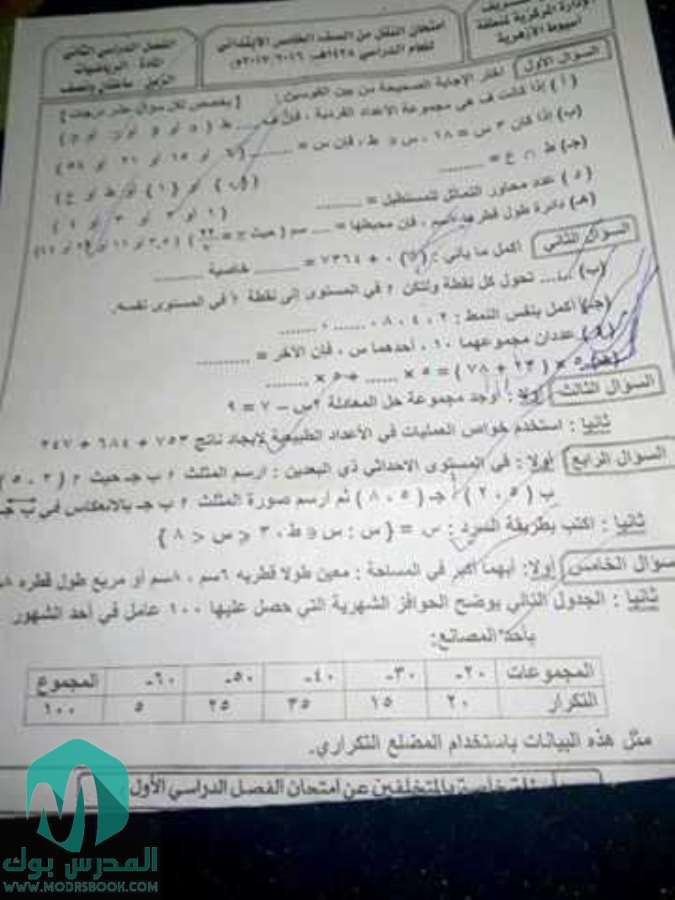 الإدارة المركزية لمنطقة
أسيوط الأزهرية
امتحان النقل من الصف الخامس الابتدائي
للعام الدراسي ١٤٣٨هـ ٢٠١٦/٢٠١٧م
الفصل الدراسي الثاني
المادة الرياضيات
الزمن ساعتان ونصف
السؤال الأول اختر الإجابة الصحيحة من بين القوسين : [ يخصص لكل سؤال عشر درجات ]
( أ ) إذا كانت ف هي مجموعة الأعداد الفردية ، فإن ف .... ط
(ب) إذا كان ٣ س = ١٨ ، س ∈ ط ، فإن س = ........ ( ٦ أو ١٥ أو ٢١ أو ٥٤ )
(جـ) ط ∩ ع = ........
( د ) عدد محاور التماثل للمستطيل = ........ ( ١ أو ٢ أو ٣ أو ٤ )
(هـ) دائرة طول قطرها ٧سم ، فإن محيطها = .... سم ( حيث
السؤال الثاني أكمل ما يأتي : (أ) ٠ + ٧٣٦٤ = ........ خاصية ........
(ب) .... تحول كل نقطة ولتكن ٢ في المستوى إلى نقطة ٢َ في المستوى نفسه.
(جـ) أكمل بنفس النمط : ٢ ، ٤ ، ٨ ، ...... ، ......
( د ) عددان مجموعهما ١٠ ، أحدهما س ، فإن الآخر = ........
(هـ) ٥ × ( ٢٣ + ٧٨ ) = ٥ × ...... + ٥ × ......
السؤال الثالث أولا : أوجد مجموعة حل المعادلة ٢س - ٧ = ٩
ثانيا : استخدم خواص العمليات في الأعداد الطبيعية لإيجاد ناتج ٧٥٣ + ٦٨٤ + ٢٤٧
السؤال الرابع أولا : في المستوى الاحداثي ذي البعدين : ارسم المثلث ٢ ب جـ حيث ٢ ( ٢ ، ٥ )
ب ( ٥ ، ٢ ) ، جـ ( ٥ ، ٨ ) ثم ارسم صورة المثلث ٢ ب جـ بالانعكاس في ب جـ
ثانيا : اكتب بطريقة السرد : س = { س : س ∈ ط ، ٣ ⩽ س < ٨ }
السؤال الخامس أولا : أيهما أكبر في المساحة : معين طولا قطريه ٦سم ، ٨سم أو مربع طول قطره
ثانيا : الجدول التالي يوضح الحوافز الشهرية التي حصل عليها ١٠٠ عامل في أحد الشهور
بأحد المصانع:
المجموعات ٢٠- ٣٠- ٤٠- ٥٠- ٦٠- المجموع
التكرار ٢٠ ١٥ ٣٥ ٢٥ ٥ ١٠٠
مثل هذه البيانات باستخدام المضلع التكراري.
أسئلة خاصة بالمتخلفين عن امتحان الفصل الدراسي الأول
المدرس بوك
WWW.MODRSBOOK.COM